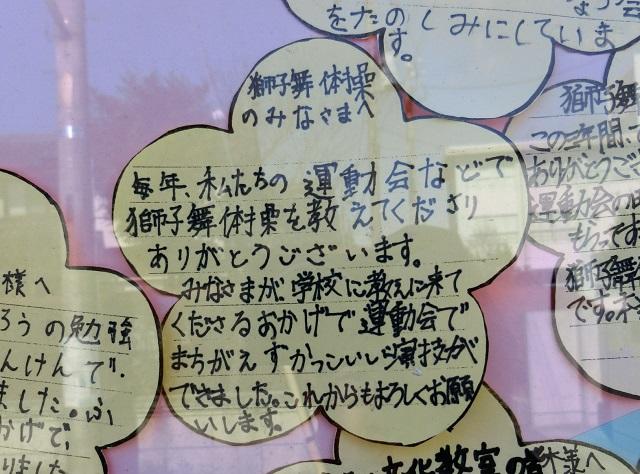 をたのしみにしていま
す。
獅子舞体操
のみなさまへ
毎年、私たちの運動会などで
獅子舞体操を教えてくださり
ありがとうございます。
みなさまが、学校に教えに来て
くださるおかげで運動会で
まちがえずかっこいい演技が
できました。これからもよろしくお願
いします。
様へ
ろうの勉強
んけんで、
ました。ふ
かげで、
りました
獅子舞
この三年間、
ありがとうござ
運動会の
もらってす
獅子舞
です。
文化教室の